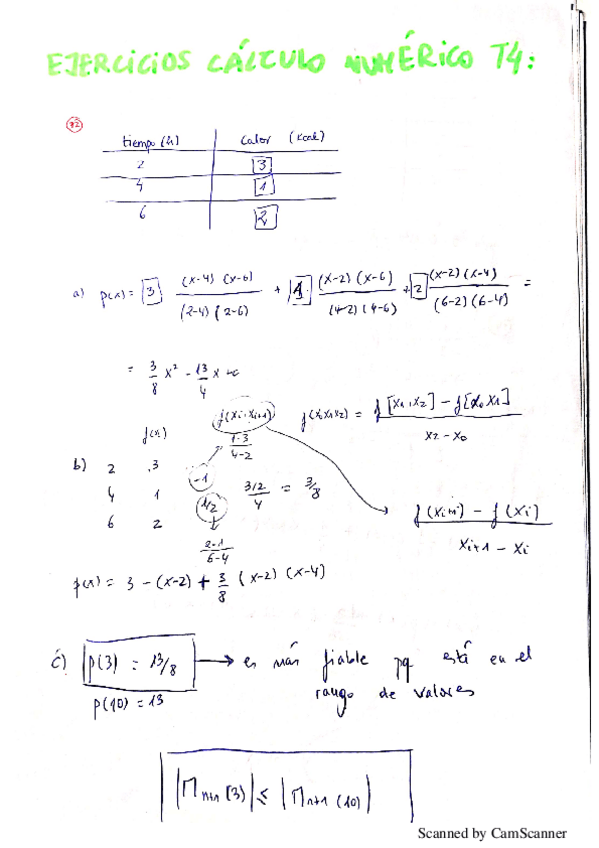 EJERCICIOS CÁLCULO NUMÉRICO T4:
72
tiempo (h) calor (kcal)
2 3
4 1
6 2
a) p(x) = 3 (x-4) (x-6) / (2-4) (2-6) + 1 (x-2) (x-6) / (4-2) (4-6) + 2 (x-2) (x-4) / (6-2) (6-4) =
= 3/8 x² - 13/4 x
f(xi) f(xi, xi+1) f(x0x1x2) = f[x1,x2] - f[x0x1] / x2 - x0
b) 2 3 -1 1-3 / 4-2
4 1 3/2 / 4 = 3/8
6 2 1/2 2-1 / 6-4
f(xi+1) - f(xi) / xi+1 - xi
p(x) = 3 - (x-2) + 3/8 (x-2) (x-4)
c) p(3) = 13/8 → es más fiable pq está en el
p(10) = 13 rango de valores
|Πn+1 (3)| ≤ |Πn+1 (10)|
Scanned by CamScanner